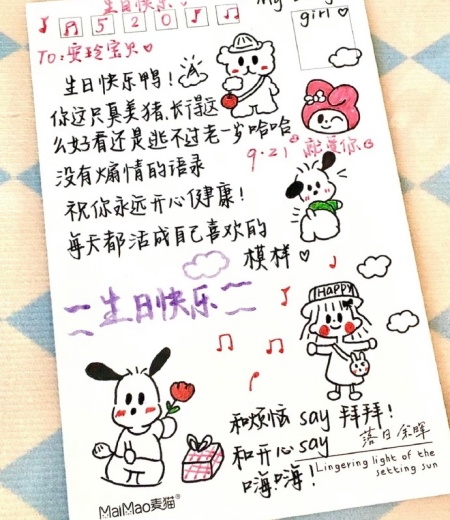 生日快乐
My
girl
5 2 0
TO:安玲宝贝
生日快乐鸭!
你这只真美猪,长得这
么好看还是逃不过老一岁哈哈
没有煽情的语录
9.21 爱你
祝你永远开心健康!
每天都活成自己喜欢的
模样
生日快乐
HAPPY
和烦恼 say 拜拜!
和开心 say
嗨嗨!
落日余晖
Lingering light of the
setting sun
MaiMao麦猫®